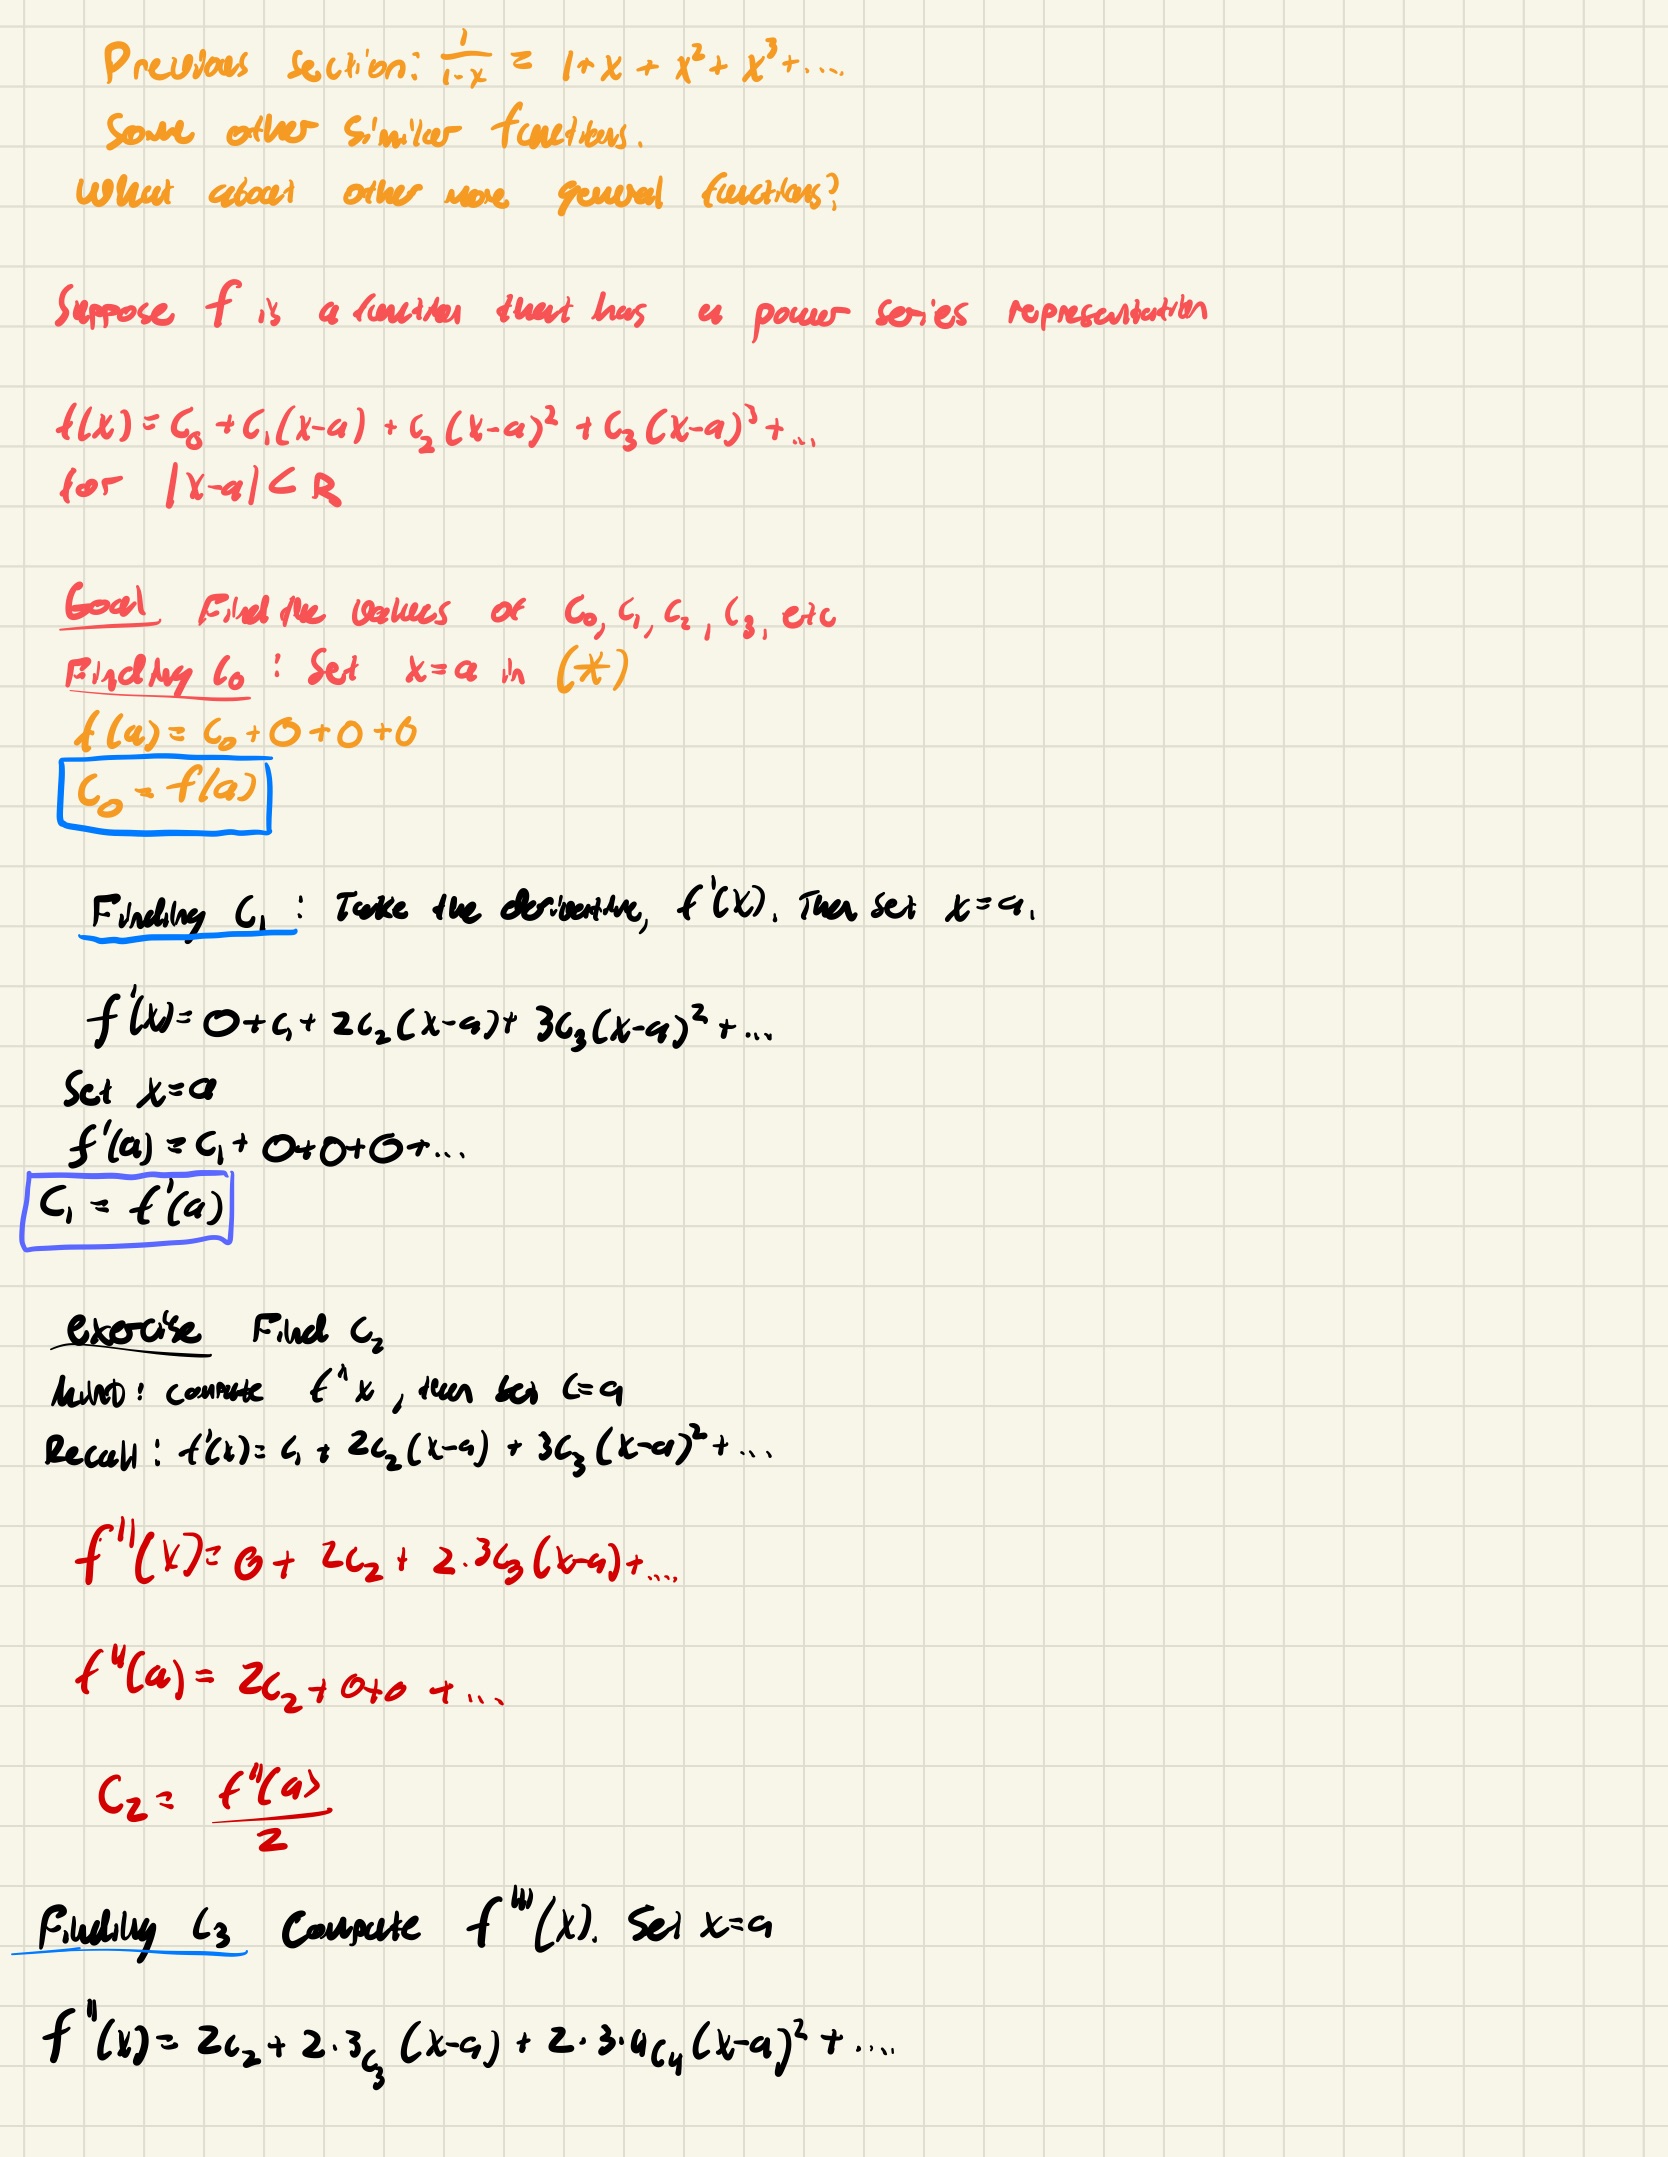 Previous section: 1/(1-x) = 1+x + x² + x³+....
Some other similar functions.
What about other more general functions?
Suppose f is a function that has a power series representation
f(x) = C₀ + C₁(x-a) + C₂(x-a)² + C₃(x-a)³ + ...
for |x-a| < R
Goal Find the values of C₀, C₁, C₂, C₃, etc
Finding C₀ : Set x=a in (*)
f(a) = C₀ + 0 + 0 + 0
C₀ = f(a)
Finding C₁ : Take the derivative, f'(x). Then set x=a.
f'(x) = 0 + C₁ + 2C₂(x-a) + 3C₃(x-a)² + ...
Set x=a
f'(a) = C₁ + 0+0+0+...
C₁ = f'(a)
exercise Find C₂
hint: compute f''x, then set C=a
Recall: f'(x) = C₁ + 2C₂(x-a) + 3C₃(x-a)² + ...
f''(x) = 0 + 2C₂ + 2·3C₃(x-a)+....
f''(a) = 2C₂ + 0+0 + ...
C₂ = f''(a)/2
Finding C₃ Compute f'''(x). Set x=a
f''(x) = 2C₂ + 2·3C₃(x-a) + 2·3·4C₄(x-a)² + ....